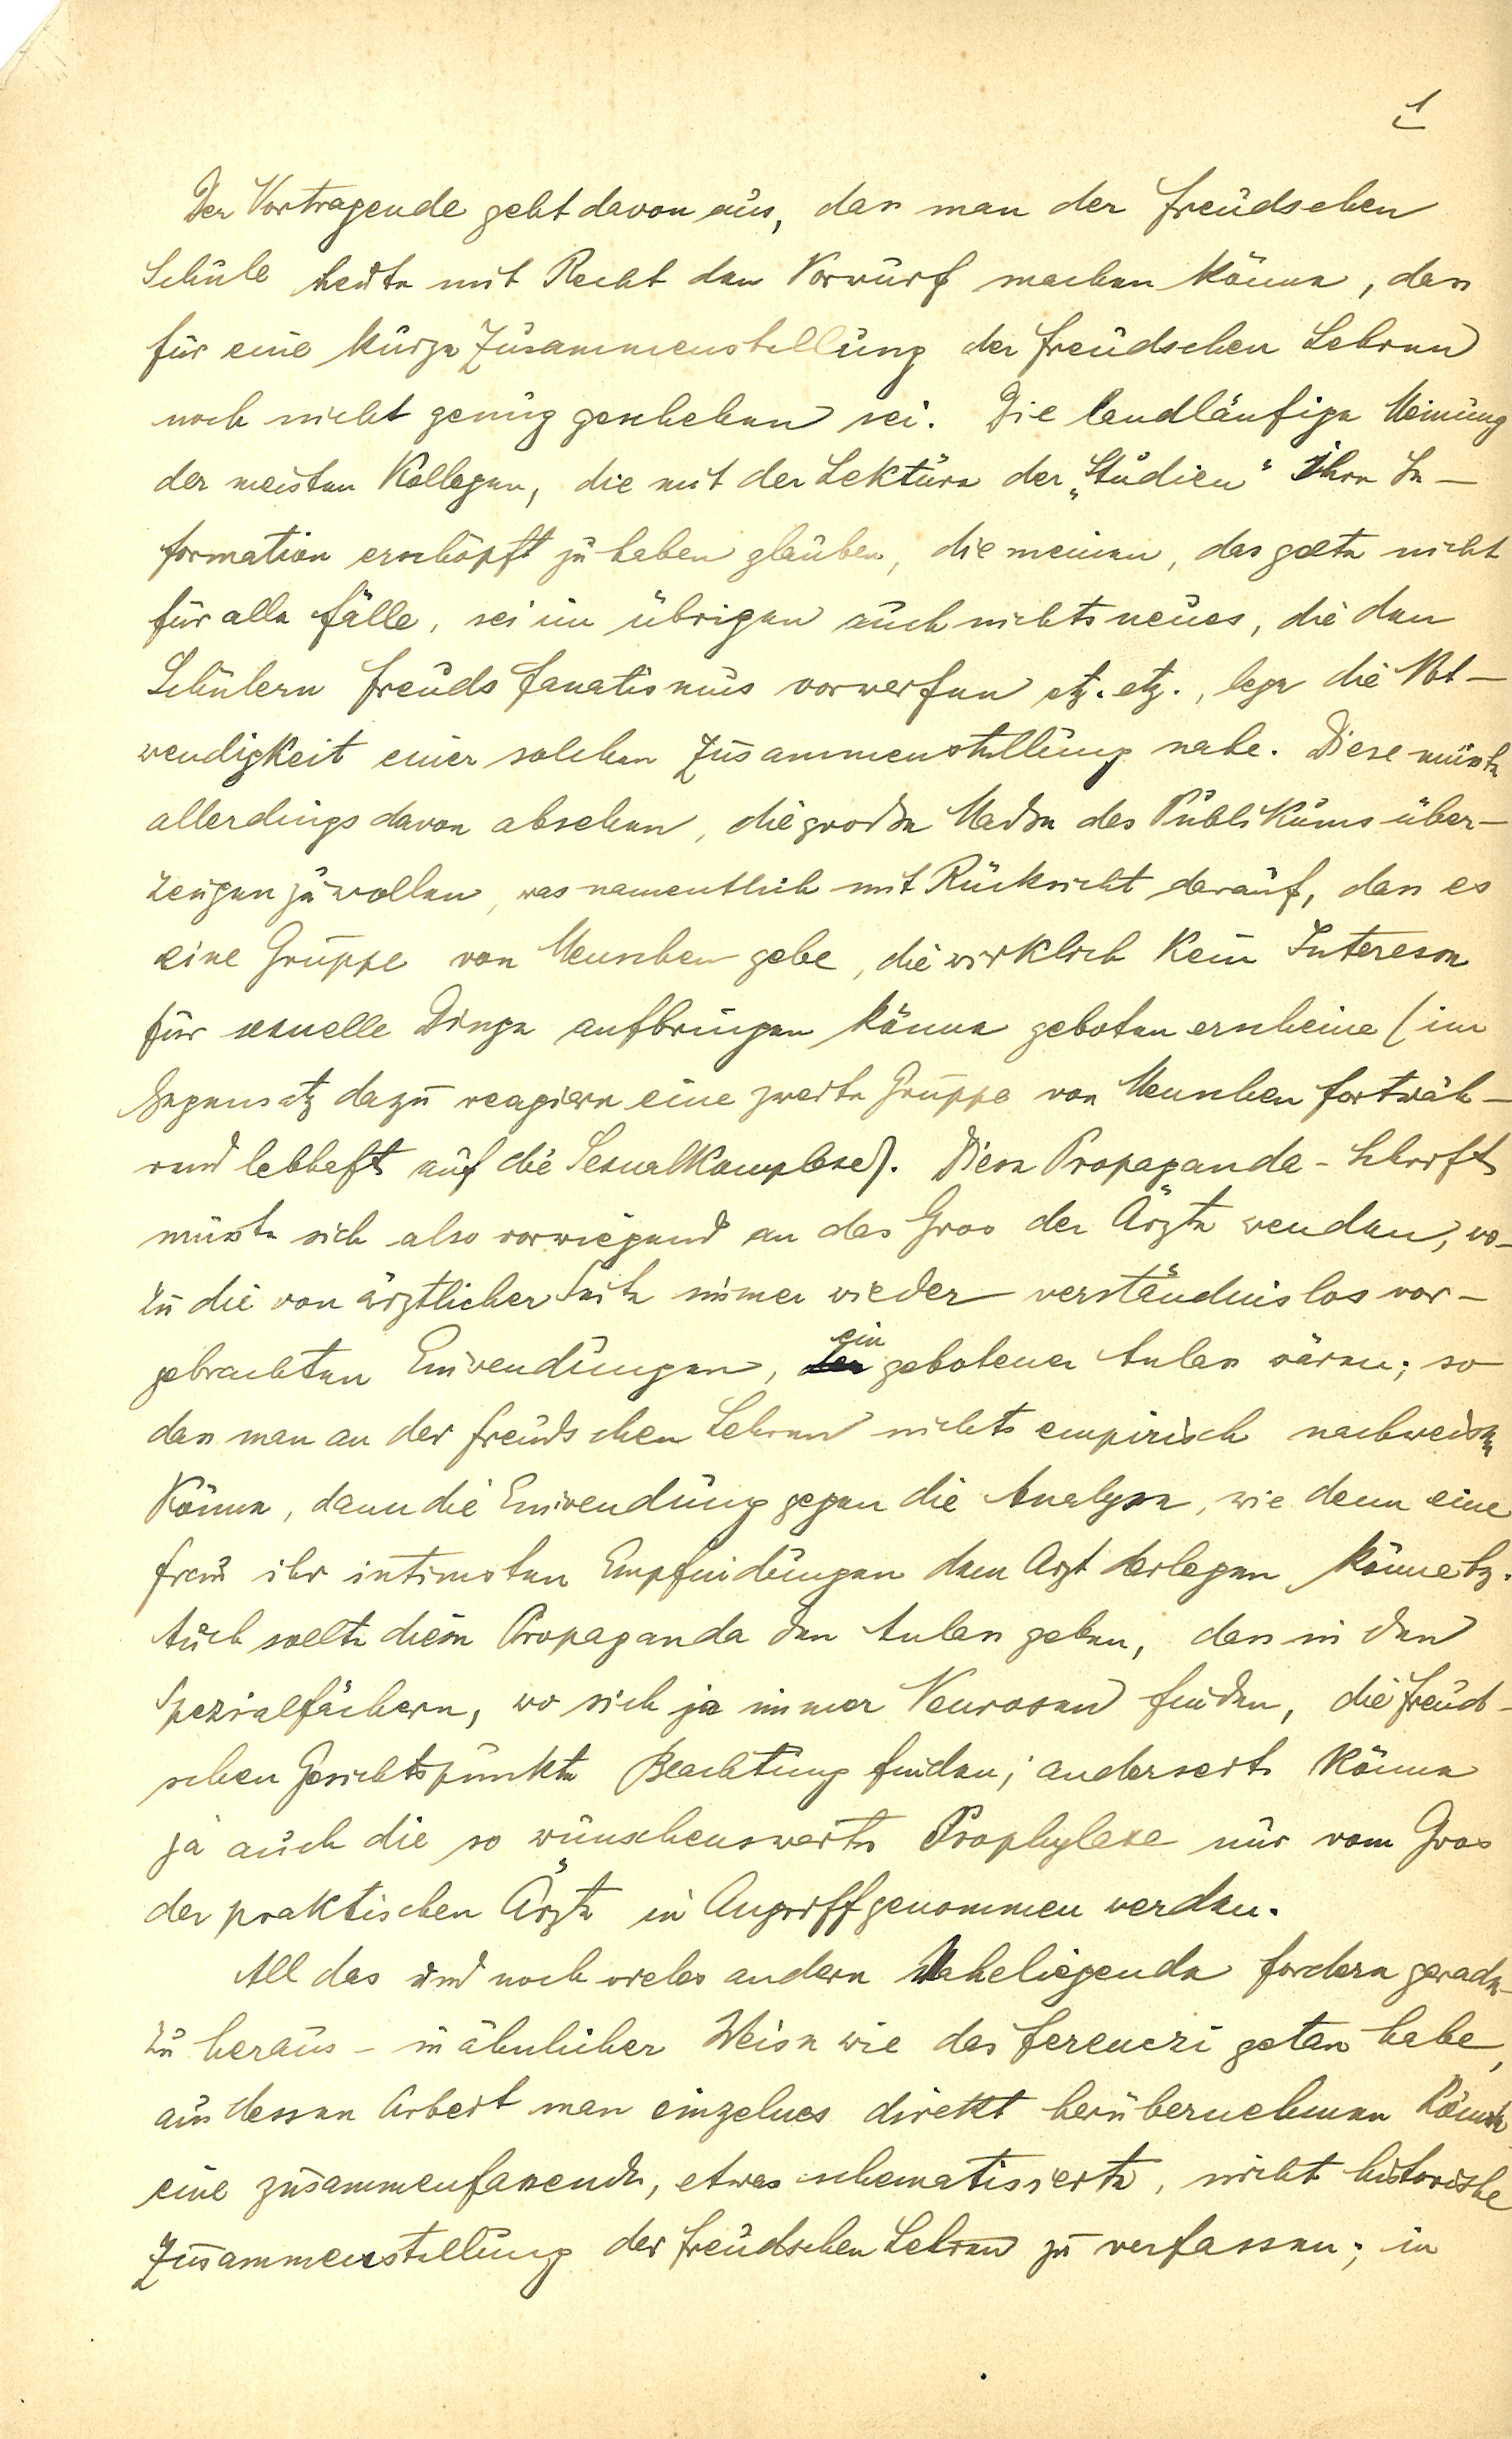 1
Der Vortragende geht davon aus, dass man der Freudschen
Schule heute mit Recht den Vorwurf machen könne, dass
für eine kurze Zusammenstellung der Freudschen Lehren
noch nicht genug geschehen sei. Die landläufige Meinung
der meisten Kollegen, die mit der Lektüre der „Studien“ ihre In-
formation erschöpft zu haben glauben, die meinen, das gelte nicht
für alle Fälle, sei im übrigen auch nichts neues, die den
Schülern Freuds Fanatismus vorwerfen etz. etz., lege die Not-
wendigkeit einer solchen Zusammenstellung nahe. Diese müsste
allerdings davon absehen, die grosse Masse des Publikums über-
zeugen zu wollen, was namentlich mit Rücksicht darauf, dass es
eine Gruppe von Menschen gebe, die wirklich kein Interesse
für sexuelle Dinge aufbringen könne geboten erscheine (im
Gegensatz dazu reagiere eine zweite Gruppe von Menschen fortwäh-
rend lebhaft auf die Sexualkomplexe). Diese Propaganda-Schrift
müsste sich also vorwiegend an das Gros der Ärzte wenden, wo-
zu die von ärztlicher Seite immer wieder verständnislos vor-
gebrachten Einwendungen, ein gebotener Anlass wären; so
dass man an der Freudschen Lehren nichts empirisch nachweisen
könne, dann die Einwendung gegen die Analyse, wie denn eine
Frau ihr intimsten Empfindungen dem Arzt darlegen könne etz.
Auch sollte diese Propaganda den Anlass geben, dass in den
Spezialfächern, wo sich ja immer Neurosen finden, die Freud-
schen Gesichtspunkte Beachtung finden; anderseits könne
ja auch die so wünschenswerte Prophylaxe nur vom Gros
der praktischen Ärzte in Angriff genommen werden.
All das und noch vieles andere Naheliegende fordere gerade-
zu heraus - in ähnlicher Weise wie das Ferenczi getan habe,
aus dessen Arbeit man einzelnes direkt herübernehmen könnte
eine zusammenfassende, etwas schematisierte, nicht historische
Zusammenstellung der Freudschen Lehren zu verfassen; in